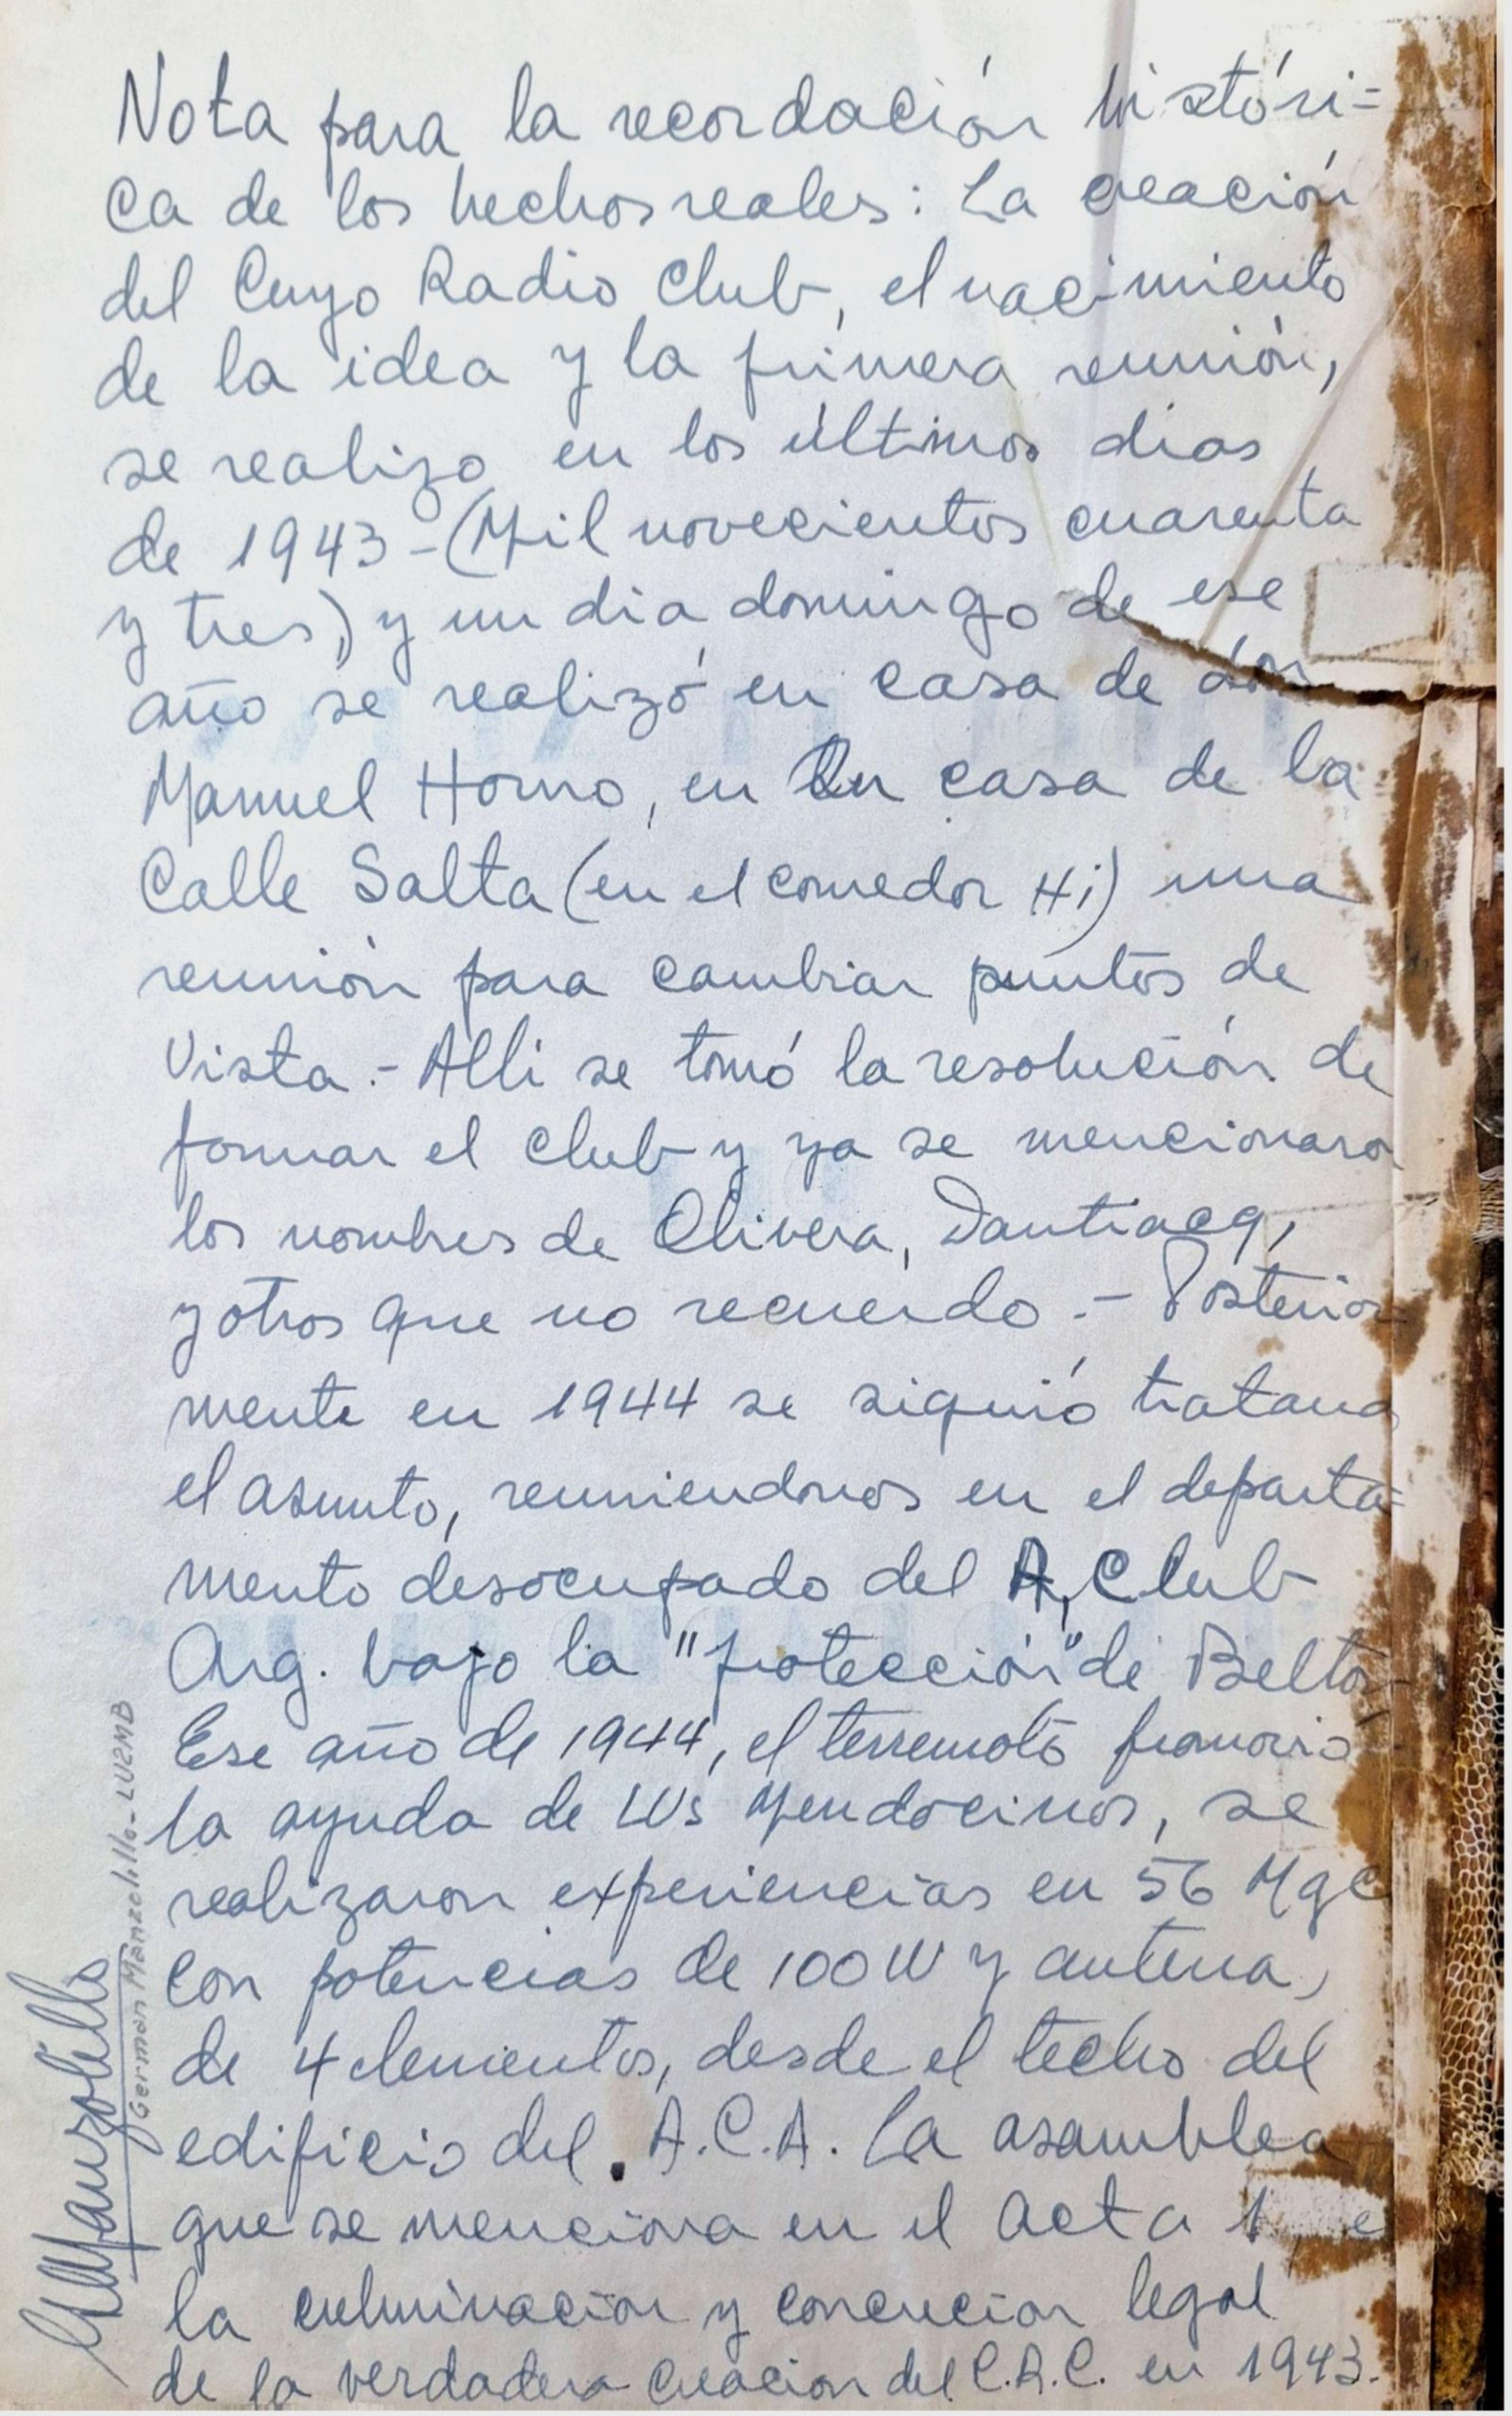 Nota para la recordación históri=
ca de los hechos reales: La creación
del Cuyo Radio Club, el nacimiento
de la idea y la primera reunión,
se realizo en los últimos dias
de 1943-(Mil novecientos cuarenta
y tres) y un dia domingo de ese
año se realizó en casa de don
Manuel Horno, en casa de la
Calle Salta (en el comedor Hi) una
reunión para cambiar puntos de
Vista.- Alli se tomó la resolución de
formar el club y ya se mencionaro
los nombres de Olivera, Dantiacq,
y otros que no recuerdo.- Posterior
mente en 1944 se siguió tratand
el asunto, reuniendonos en el departa=
mento desocupado del A, Club
Arg. bajo la "protección" de Beltrán
Ese año de 1944, el terremoto
la ayuda de LUs Mendocinos, se
realizaron experiencias en 56 Mgc
con potencias de 100 W y antena,
de 4 elementos, desde el techo del
edificio del. A.C.A. La asamblea
que se menciona en el acta 1
la culminación y legal
de la verdadera creacion del C.R.C. en 1943.
GManzolillo
German Manzolillo - LU2MB